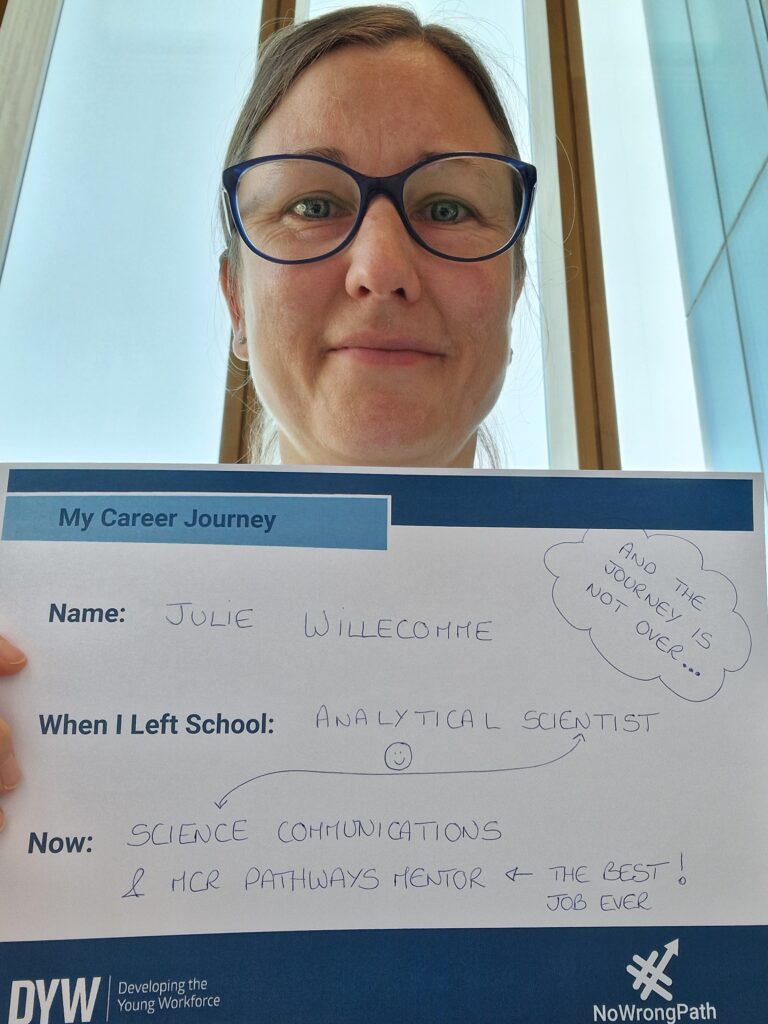 My Career Journey
AND THE
JOURNEY IS
NOT OVER...
Name: JULIE WILLECOMME
When I Left School: ANALYTICAL SCIENTIST
Now: SCIENCE COMMUNICATIONS
& MCR PATHWAYS MENTOR ← THE BEST!
JOB EVER
DYW Developing the
Young Workforce
NoWrongPath